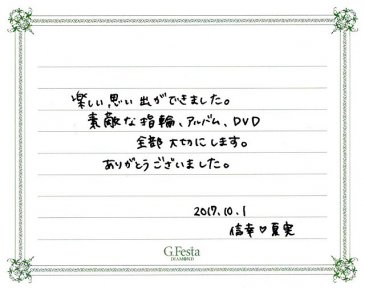 楽しい思い出ができました。
素敵な指輪、アルバム、DVD
全部大切にします。
ありがとうございました。
2017.10.1
信幸♡夏実
G.Festa
DIAMOND